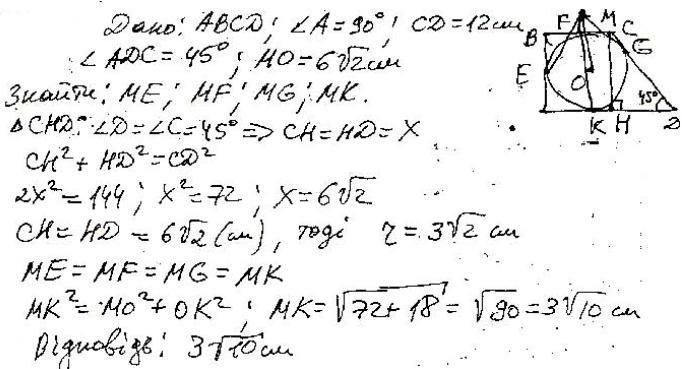 Дано: ABCD; ∠A=90°; CD=12см
∠ADC=45°; MO=6√2см
Знайти: ME; MF; MG; MK.
△CHD: ∠D=∠C=45° => CH=HD=X
CH²+HD²=CD²
2X²=144; X²=72; X=6√2
CH=HD=6√2(см), тоді r=3√2 см
ME=MF=MG=MK
MK²=MO²+OK²; MK=√72+18=√90=3√10 см
Відповідь: 3√10см
F M C
B G
E O
45°
K H D